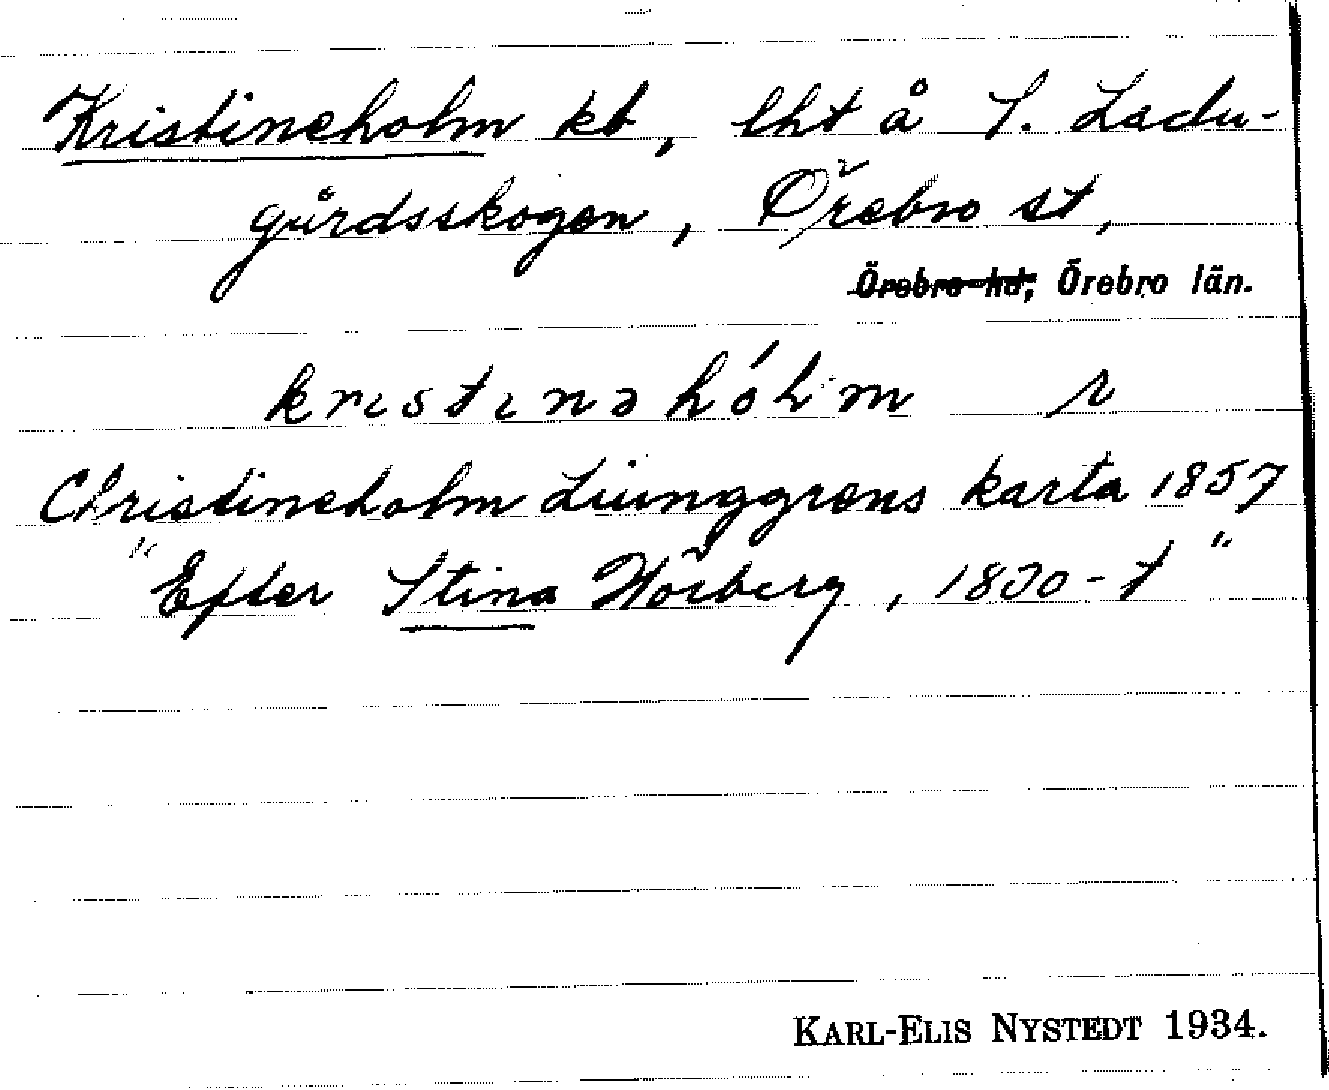 Kristineholm kt, lht å S. Ladu-
gårdsskogen, Örebro st,
Örebro hd, Örebro län.
kristinəhólm r
Christineholm Ljunggrens karta 1857
"Efter Stina Hörberg, 1800-t"
KARL-ELIS NYSTEDT 1934.